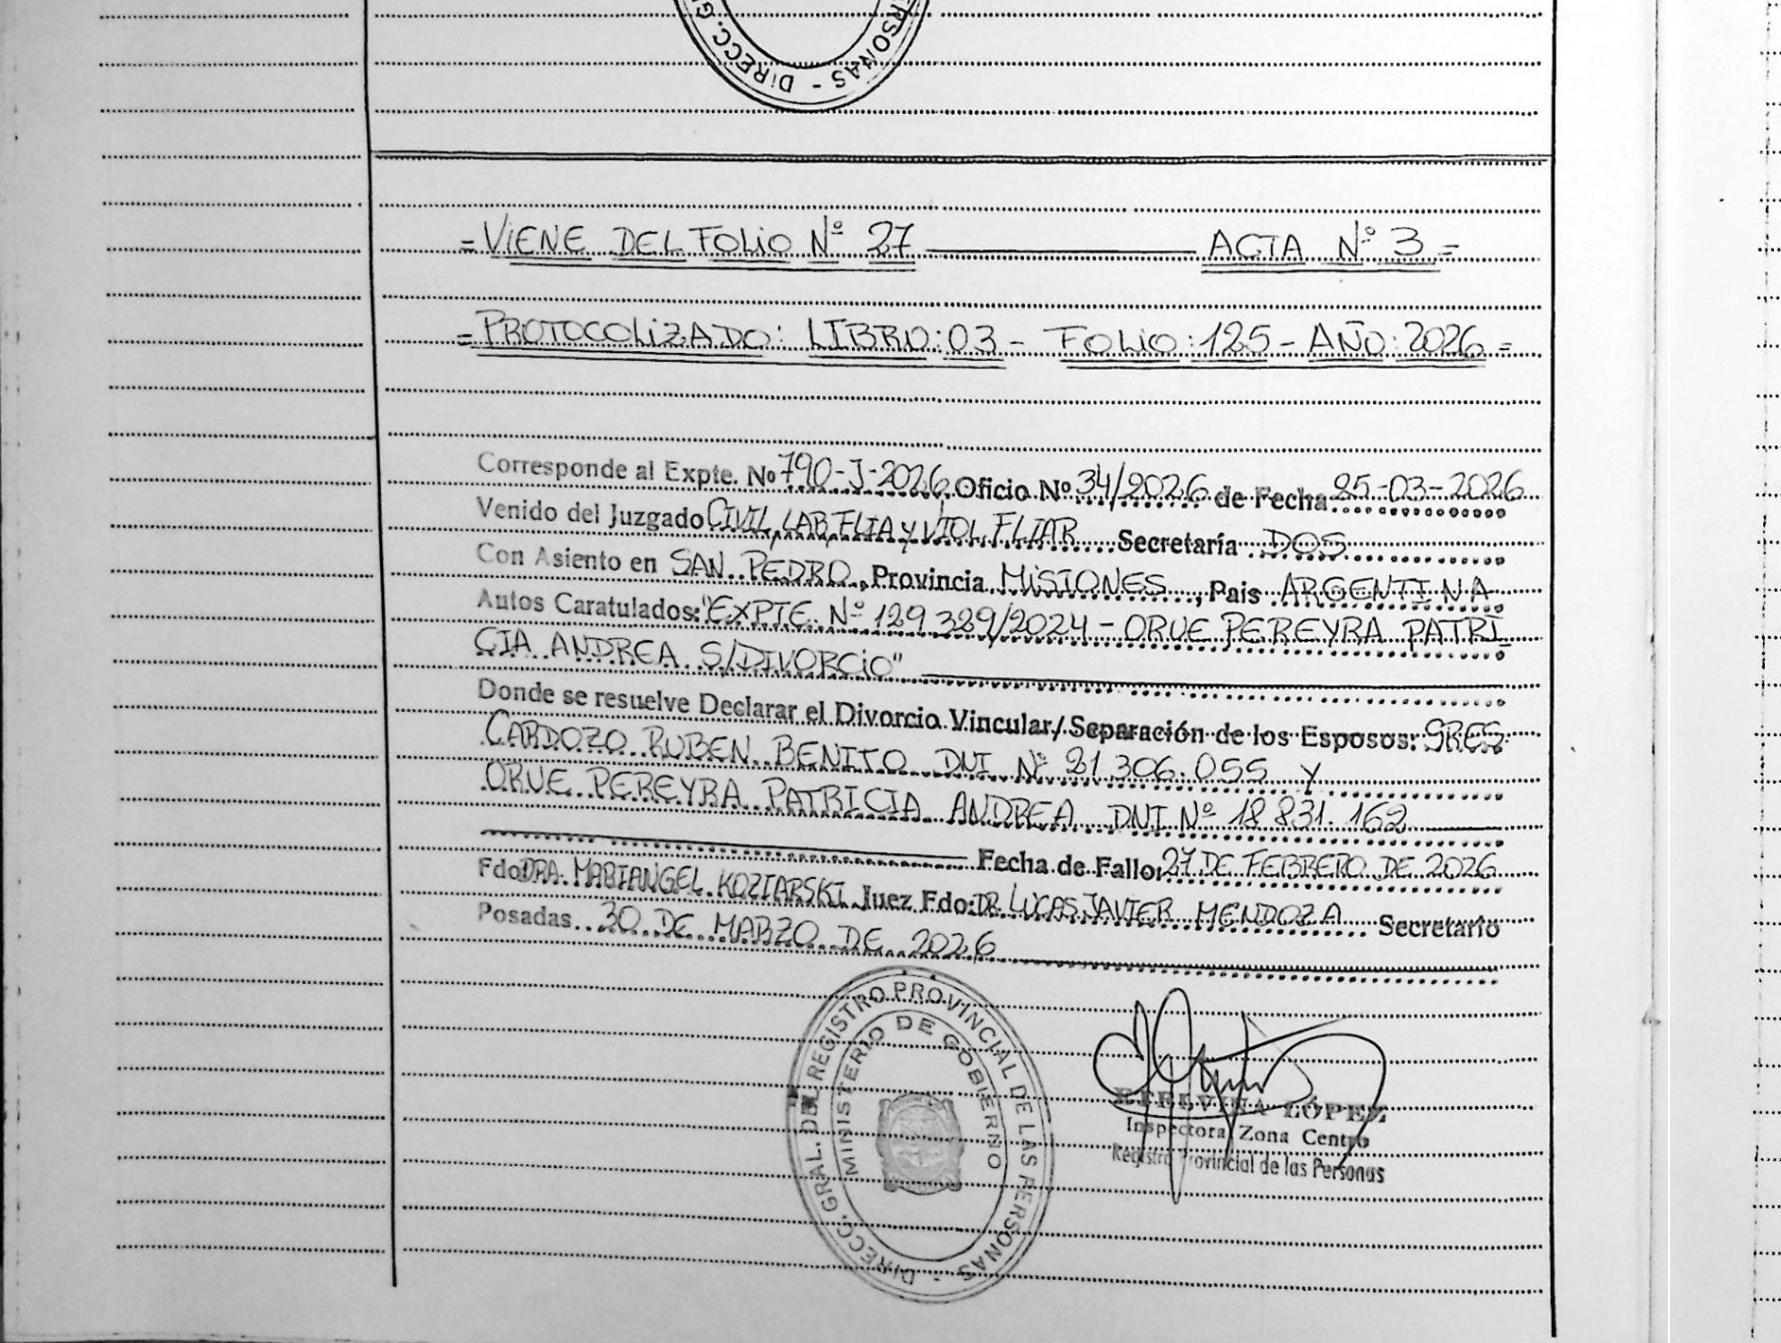 DIRECC. G
ERSONAS -
= VIENE DEL FOLIO Nº 27 ACTA Nº 3 =
= PROTOCOLIZADO: LIBRO: 03 - FOLIO: 125 - AÑO: 2026 =
Corresponde al Expte. Nº 790-J-2026 Oficio Nº 34/2026 de Fecha 25-03-2026
Venido del Juzgado CIVIL, LAB, FLIA Y VIOL. FLIAR Secretaría DOS
Con Asiento en SAN PEDRO, Provincia MISIONES, Pais ARGENTINA
Autos Caratulados: "EXPTE. Nº 129.389/2024 - ORUE PEREYRA PATRI
CIA ANDREA S/DIVORCIO"
Donde se resuelve Declarar el Divorcio Vincular/Separación de los Esposos: SRES.
CARDOZO RUBEN BENITO DNI Nº 21.306.055 Y
ORUE PEREYRA PATRICIA ANDREA DNI Nº 18.831.162
Fecha de Fallo: 27 DE FEBRERO DE 2026
Fdo DRA. MARIANGEL KOZIARSKI Juez Fdo: DR. LUCAS JAVIER MENDOZA Secretario
Posadas 30 DE MARZO DE 2026
DIRECC. GRAL. DEL REGISTRO PROVINCIAL DE LAS PERSONAS -
MINISTERIO DE GOBIERNO
ETELVINA LÓPEZ
Inspectora Zona Centro
Registro Provincial de las Personas